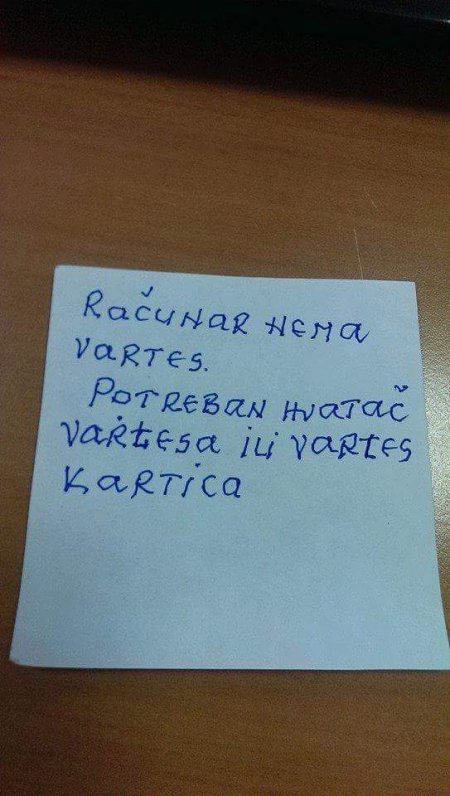 RAČUNAR NEMA
VARTES.
POTREBAN HVATAČ
VARTESA ILI VARTES
KARTICA